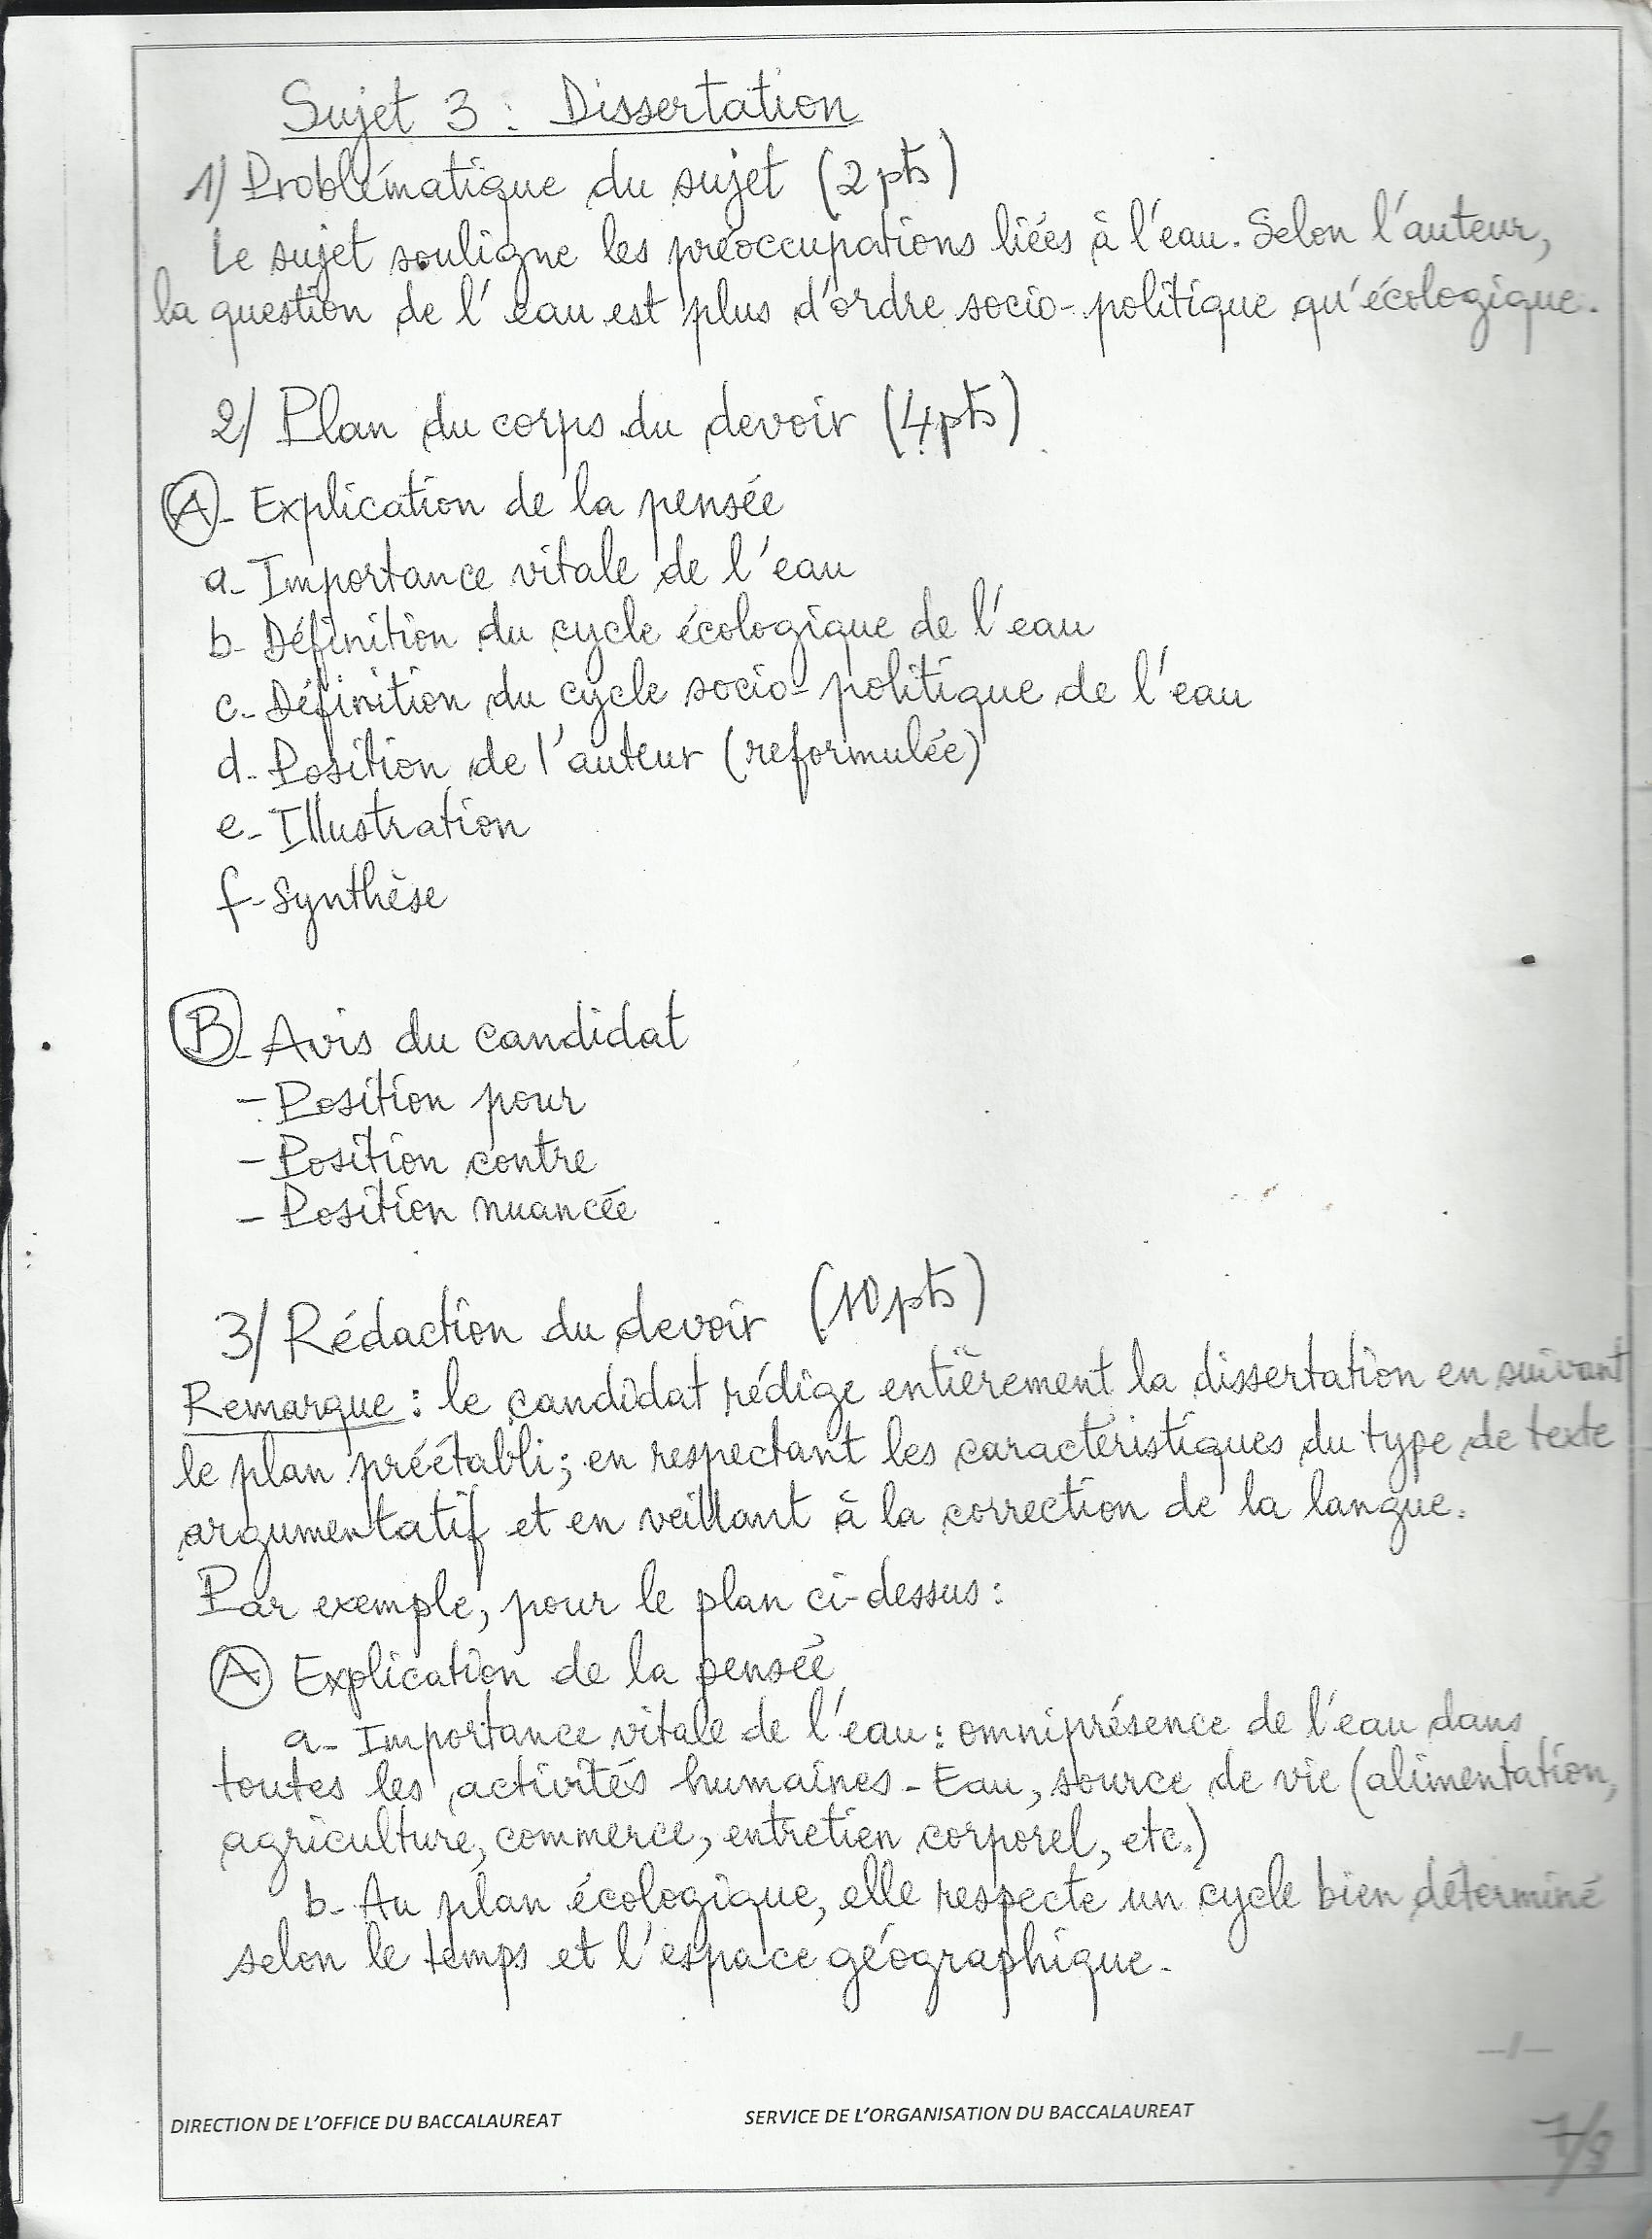 Sujet 3 : Dissertation
1) Problématique du sujet (2 pts)
Le sujet souligne les préoccupations liées à l'eau. Selon l'auteur,
la question de l'eau est plus d'ordre socio-politique qu'écologique.
2/ Plan du corps du devoir (4pts)
A- Explication de la pensée
a- Importance vitale de l'eau
b- Définition du cycle écologique de l'eau
c- Définition du cycle socio-politique de l'eau
d- Position de l'auteur (reformulée)
e- Illustration
f- Synthèse
B- Avis du candidat
- Position pour
- Position contre
- Position nuancée
3/ Rédaction du devoir (10 pts)
Remarque : le candidat rédige entièrement la dissertation en suivant
le plan préétabli ; en respectant les caractéristiques du type de texte
argumentatif et en veillant à la correction de la langue.
Par exemple, pour le plan ci-dessus :
A Explication de la pensée
a- Importance vitale de l'eau : omniprésence de l'eau dans
toutes les activités humaines - Eau, source de vie (alimentation,
agriculture, commerce, entretien corporel, etc.)
b- Au plan écologique, elle respecte un cycle bien déterminé
selon le temps et l'espace géographique.
—/—
DIRECTION DE L'OFFICE DU BACCALAUREAT SERVICE DE L'ORGANISATION DU BACCALAUREAT
7/8